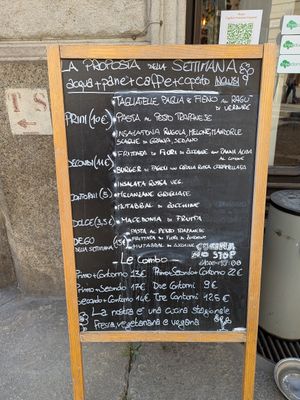 LA PROPOSTA DELLA SETTIMANA
acqua+pane+caffè+coperto
PRIMI (10€)
• TAGLIATELLE PAGLIA E FIENO AL RAGU' DI VERDURE
• PASTA AL PESTO TRAPANESE
• INSALATONA RUCOLA, MELONE, MANDORLE SCAGLIE DI GRANA, SEDANO
SECONDI (11€)
• FRITTATA DI FIORI DI ZUCCHINE
• BURGER DI FAGIOLI CON CIPOLLA ROSSA CARAMELLATA
CONTORNI (5)
• INSALATA RUSSA VEG.
• MELANZANE GRIGLIATE
• MUTABBAL DI ZUCCHINE
DOLCE (3,5)
• MACEDONIA DI FRUTTA
DELLA SETTIMANA (15€)
PASTA AL PESTO TRAPANESE
FRITTATA DI FIORI DI ZUCCHINE
MUTABBAL DI ZUCCHINE
Le Combo
CUCINA NO STOP
Primo+Contorno 13€ Primo+Secondo+Contorno 22€
Primo+Secondo 17€ Due Contorni 9€
Secondo+Contorno 14€ Tre Contorni 12,5€
La nostra è una cucina stagionale
fresca, vegetariana e vegana